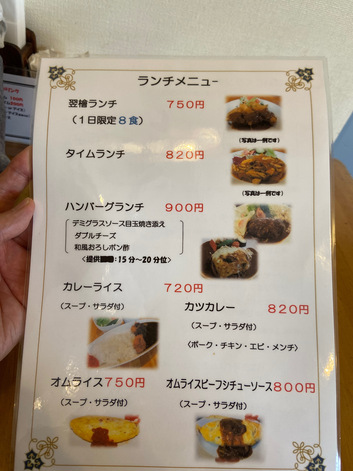 ランチメニュー
翌檜ランチ 750円
(1日限定8食)
(写真は一例です)
タイムランチ 820円
(写真は一例です)
ハンバーグランチ 900円
デミグラスソース目玉焼き添え
ダブルチーズ
和風おろしポン酢
<提供 :15分~20分位>
カレーライス 720円
(スープ・サラダ付)
カツカレー 820円
(スープ・サラダ付)
<ポーク・チキン・エビ・メンチ>
オムライス 750円
(スープ・サラダ付)
オムライスビーフシチューソース 800円
(スープ・サラダ付)